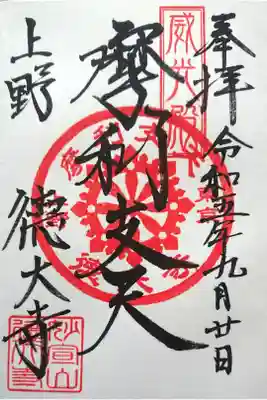 奉拝
令和五年九月廿日
威光殿
摩利支天
上野
徳大寺
妙宣山